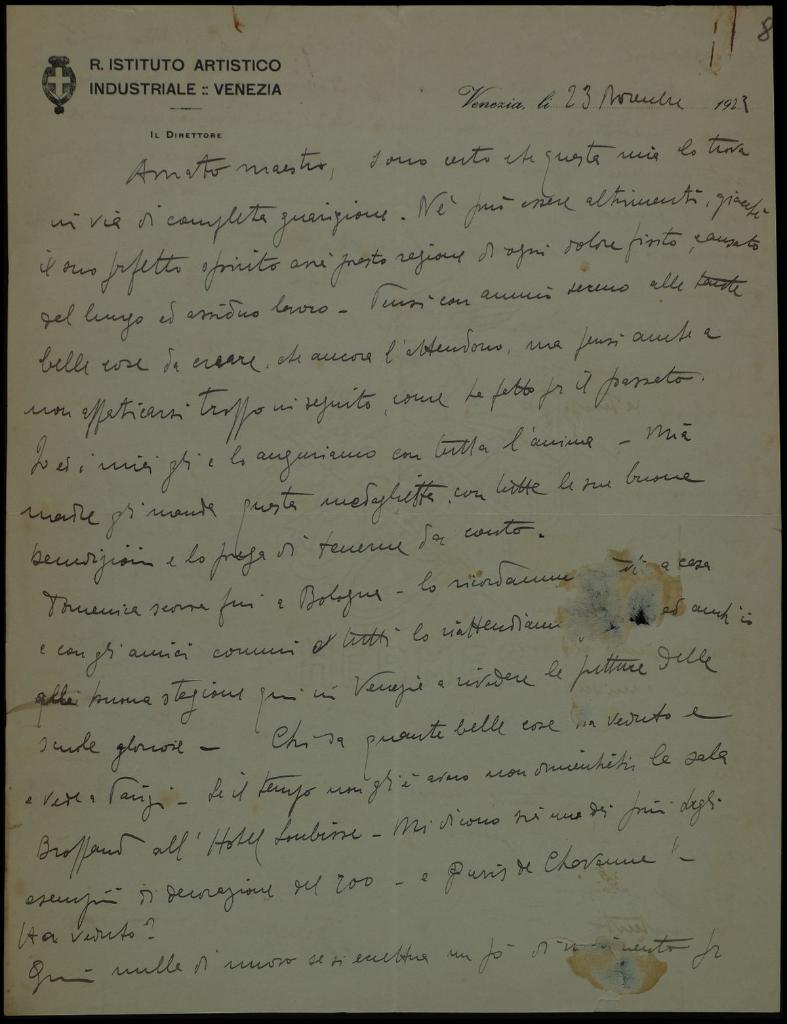 8
R. ISTITUTO ARTISTICO
INDUSTRIALE :: VENEZIA
IL DIRETTORE
Venezia, li 23 Novembre 1923
Amato maestro, sono certo che questa mia lo trova
in via di completa guarigione. Nè può essere altrimenti, giacchè
il suo perfetto spirito avrà presto ragione di ogni dolore fisico, causato
dal lungo ed assiduo lavoro – Pensi con animo sereno alle tante
belle cose da creare, che ancora l'attendono, ma pensi anche a
non affaticarsi troppo in seguito, come ha fatto pr il passato.
Io ed i miei gli e lo auguriamo con tutta l'anima – Mia
madre gli manda questa medaglietta, con tutte le sue buone
benedizioni e lo prega di tenerne da conto.
Domenica scorsa fui a Bologna – lo ricordammo a casa
e con gli amici comuni e tutti lo riattendiamo ed anch'io
alla buona stagione qui in Venezia a rivedere le pitture delle
scuole gloriose – Chi sa quante belle cose ha veduto e
e vede a Parigi – Se il tempo non gli è avaro non dimentichi la sala
all'Hotel Soubisse – Mi dicono sia uno dei più begli
esempii di decorazione del 700 – e Puvis de Chavanne" –
Ha veduto?
Qui nulla di nuovo se si eccettua un pò di pr